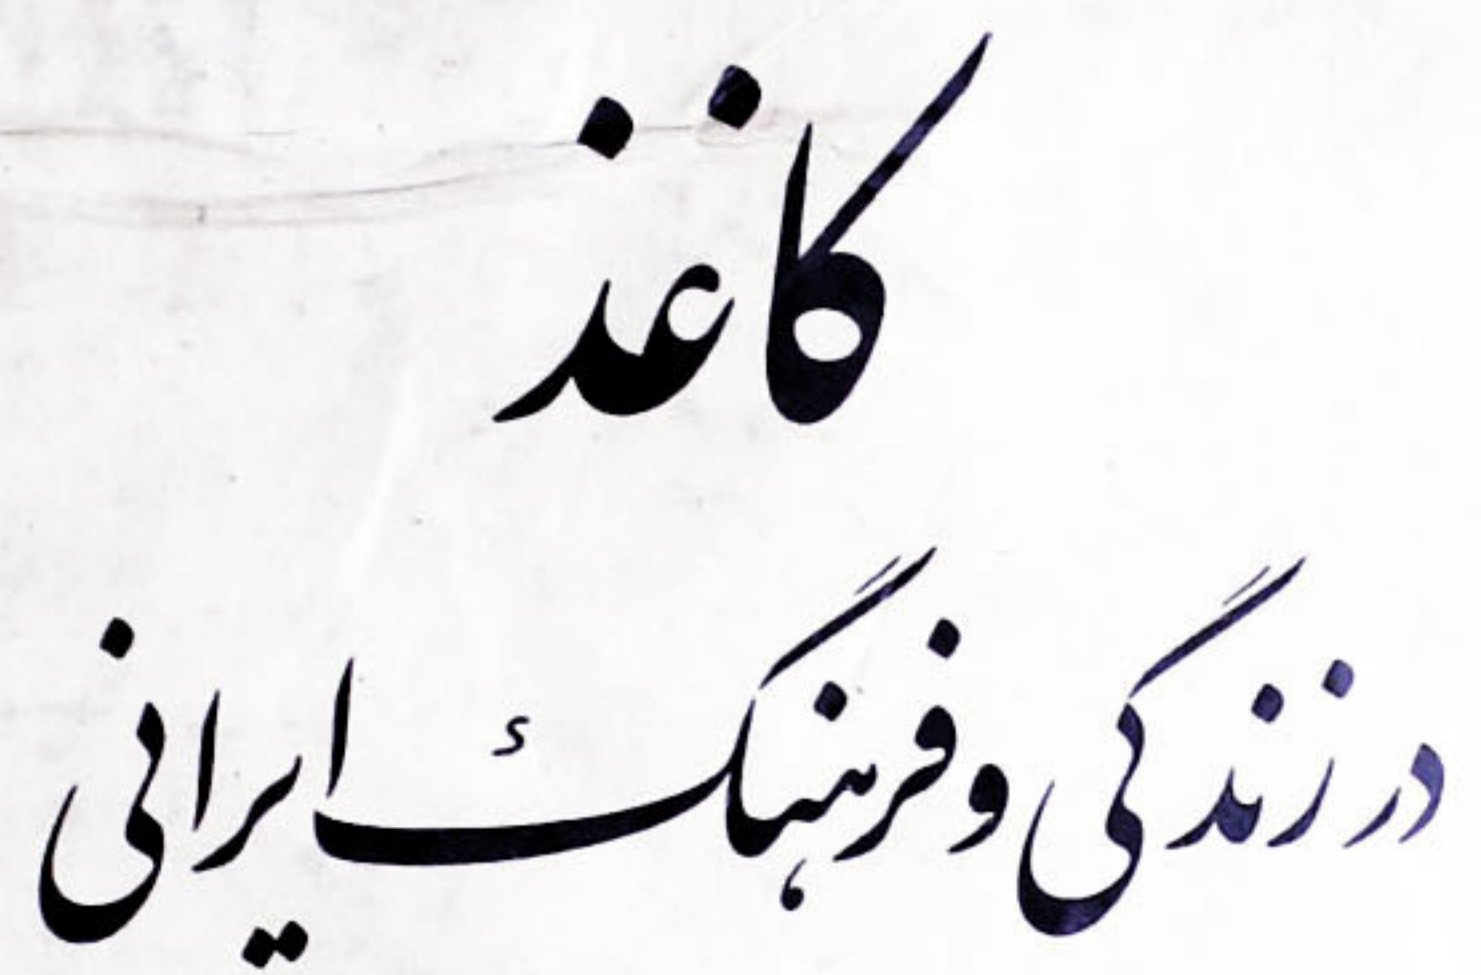 کاغذ
در زندگی و فرهنگ ایرانی